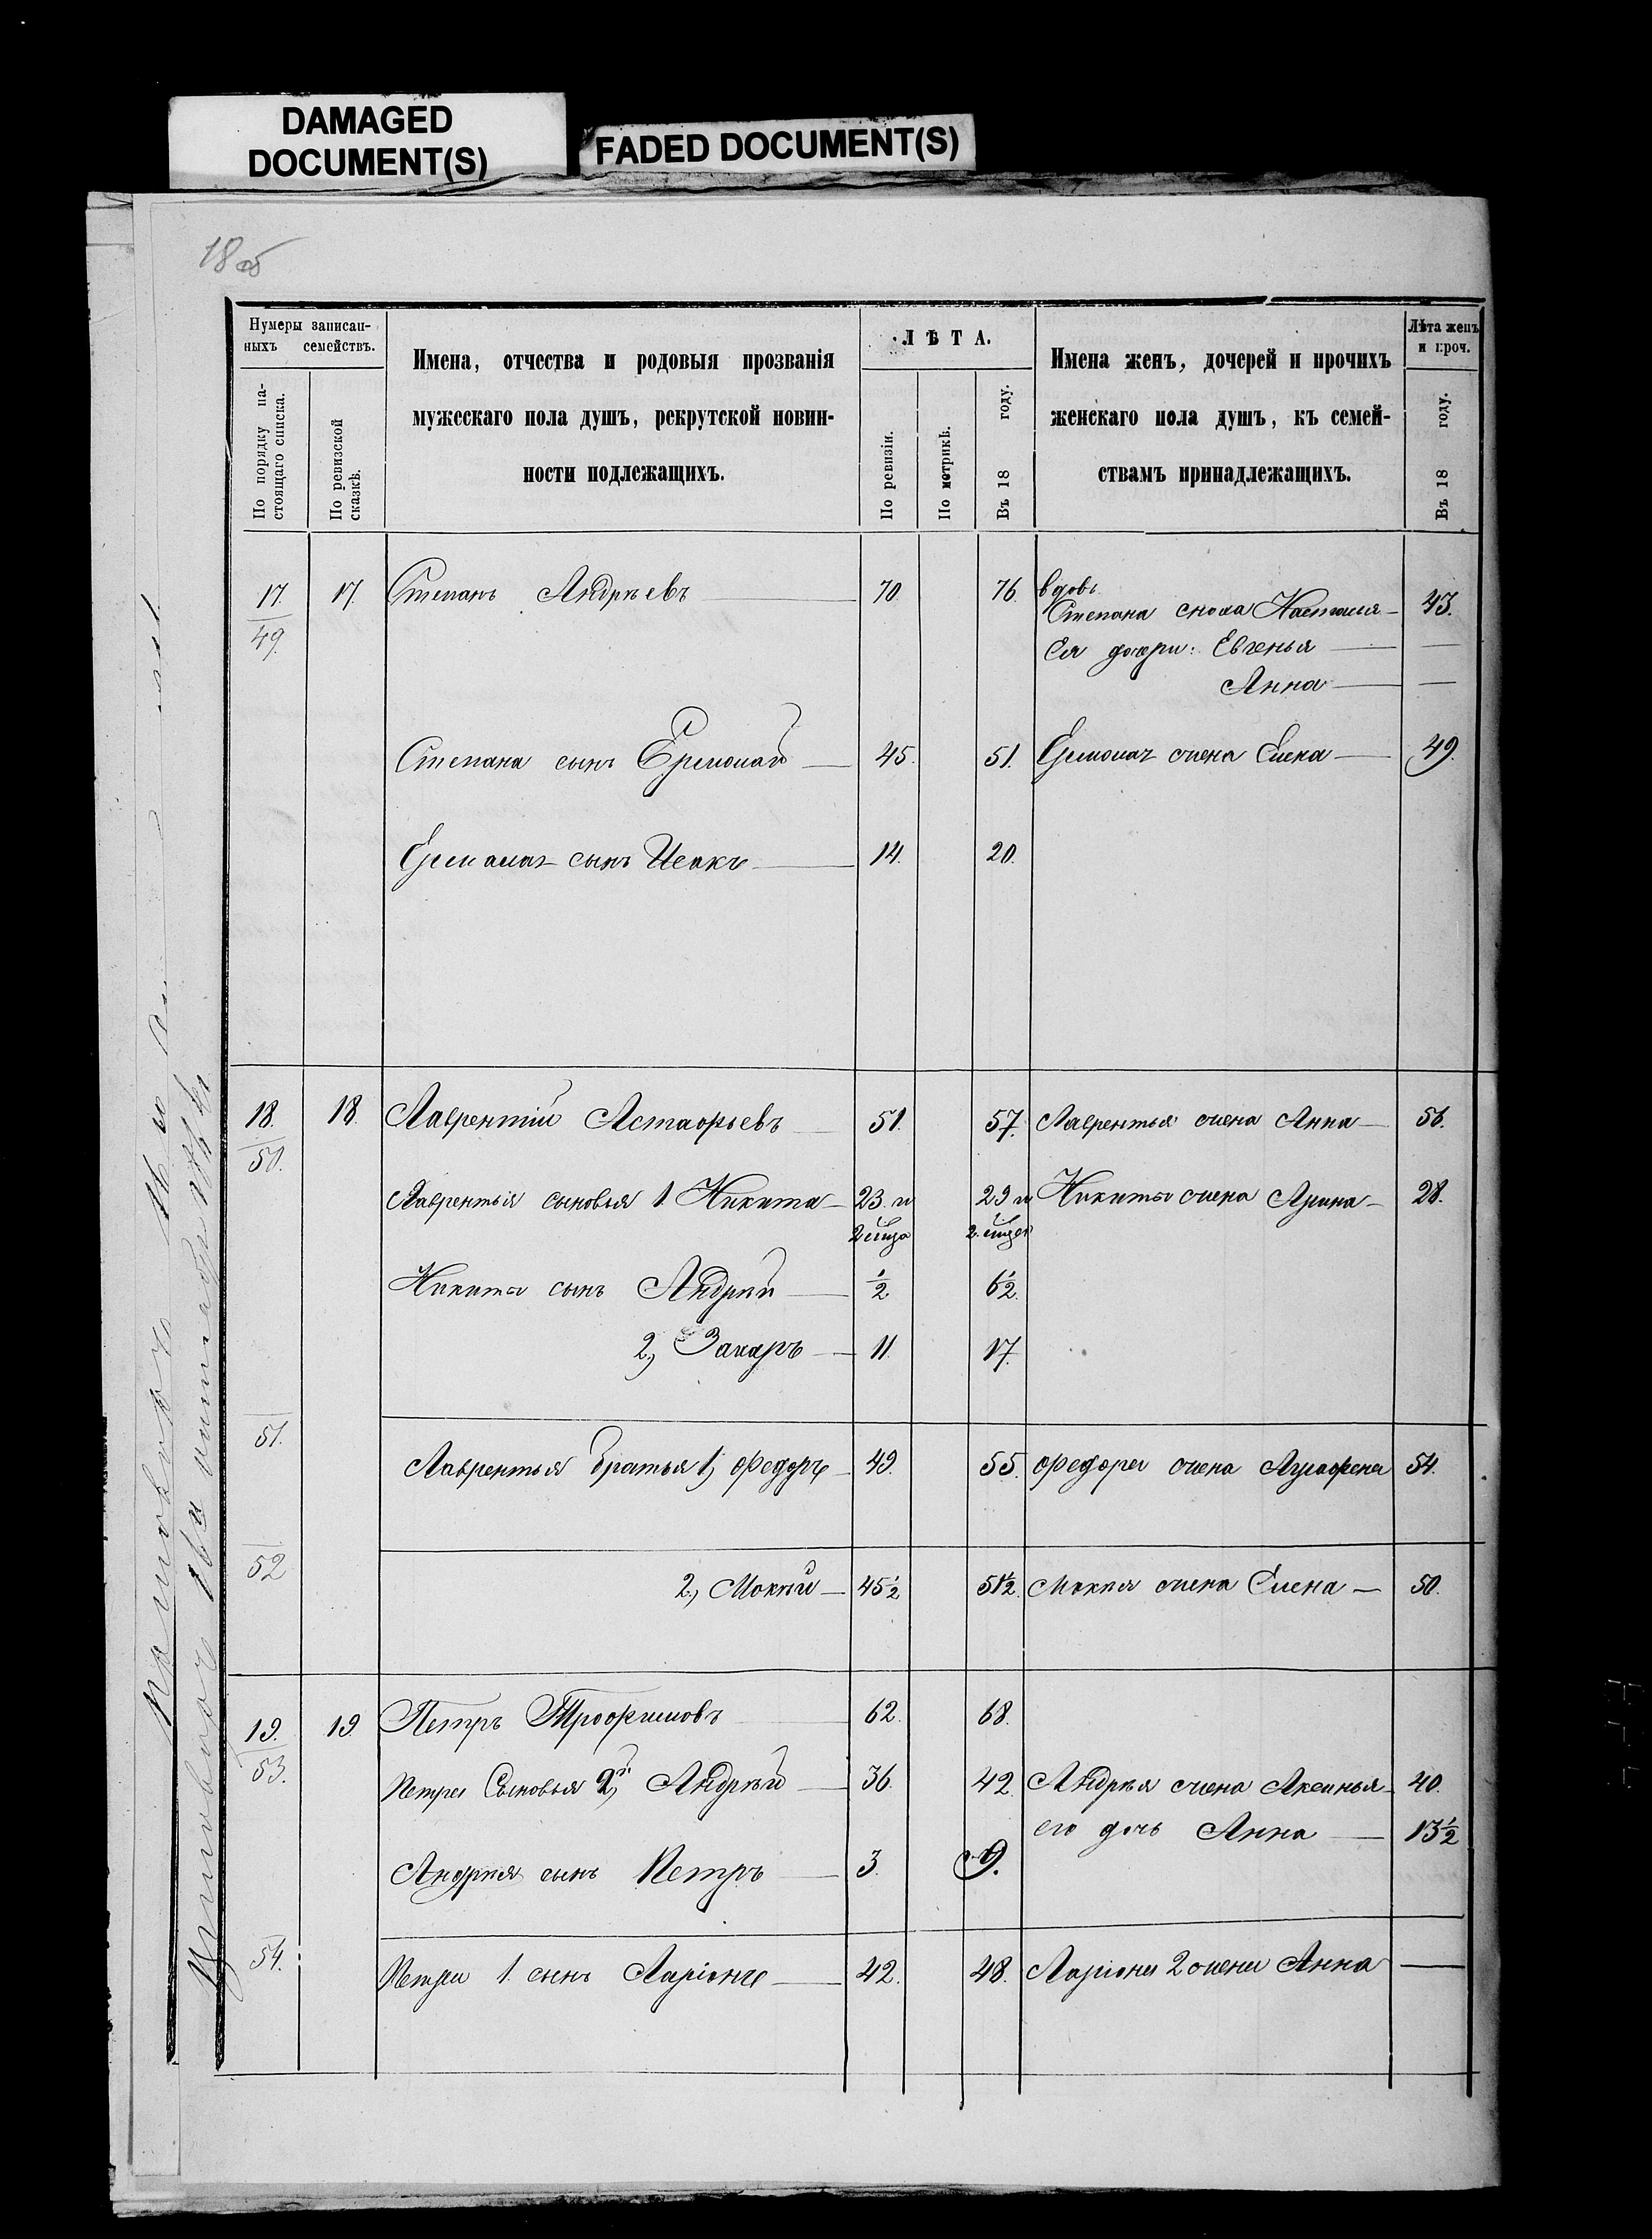 DAMAGED
DOCUMENT(S)
FADED DOCUMENT(S)
18 об
Нумеры записан-
ныхъ семействъ.
По порядку на-
стоящаго списка.
По ревизской
сказкѣ.
Имена, отчества и родовыя прозванія
мужескаго пола душъ, рекрутской повин-
ности подлежащихъ.
ЛѢТА.
По ревизіи.
По метрикѣ.
Въ 18 году.
Имена женъ, дочерей и прочихъ
женскаго пола душъ, къ семей-
ствамъ принадлежащихъ.
Лѣта женъ
и проч.
Въ 18 году.
17. 17. Степанъ Андрѣевъ 70. 76. вдовы
49. Степана сноха Настасья 43.
Ея дочери: Евгенья —
Анна —
Степана сынъ Ермолай 45. 51. Ермолая жена Елена 49.
Ермолая сынъ Исакъ 14. 20.
18. 18. Лаврентій Астафьевъ 51. 57. Лаврентья жена Анна 56.
50.
Лаврентья сыновья 1 Никита 23. и 29 и Никиты жена Арина 28.
2 мца 2. мцеа
Никиты сынъ Андрѣй ½ 6½.
2, Захаръ 11. 17.
51.
Лаврентья братья 1, Федоръ 49. 55. Федора жена Аграфена 54.
52
2, Мокѣй 45½ 51½. Мокѣя жена Елена 50.
19. 19. Петръ Трофимовъ 62. 68.
53.
Петра Сыновья 2й, Андрѣй 36. 42. Андрѣя жена Аксинья 40.
его дочь Анна 13½
Андрѣя сынъ Петръ 3. 9.
54.
Петра 1. сынъ Ларіонъ 42. 48. Ларіона 2 жена Анна —